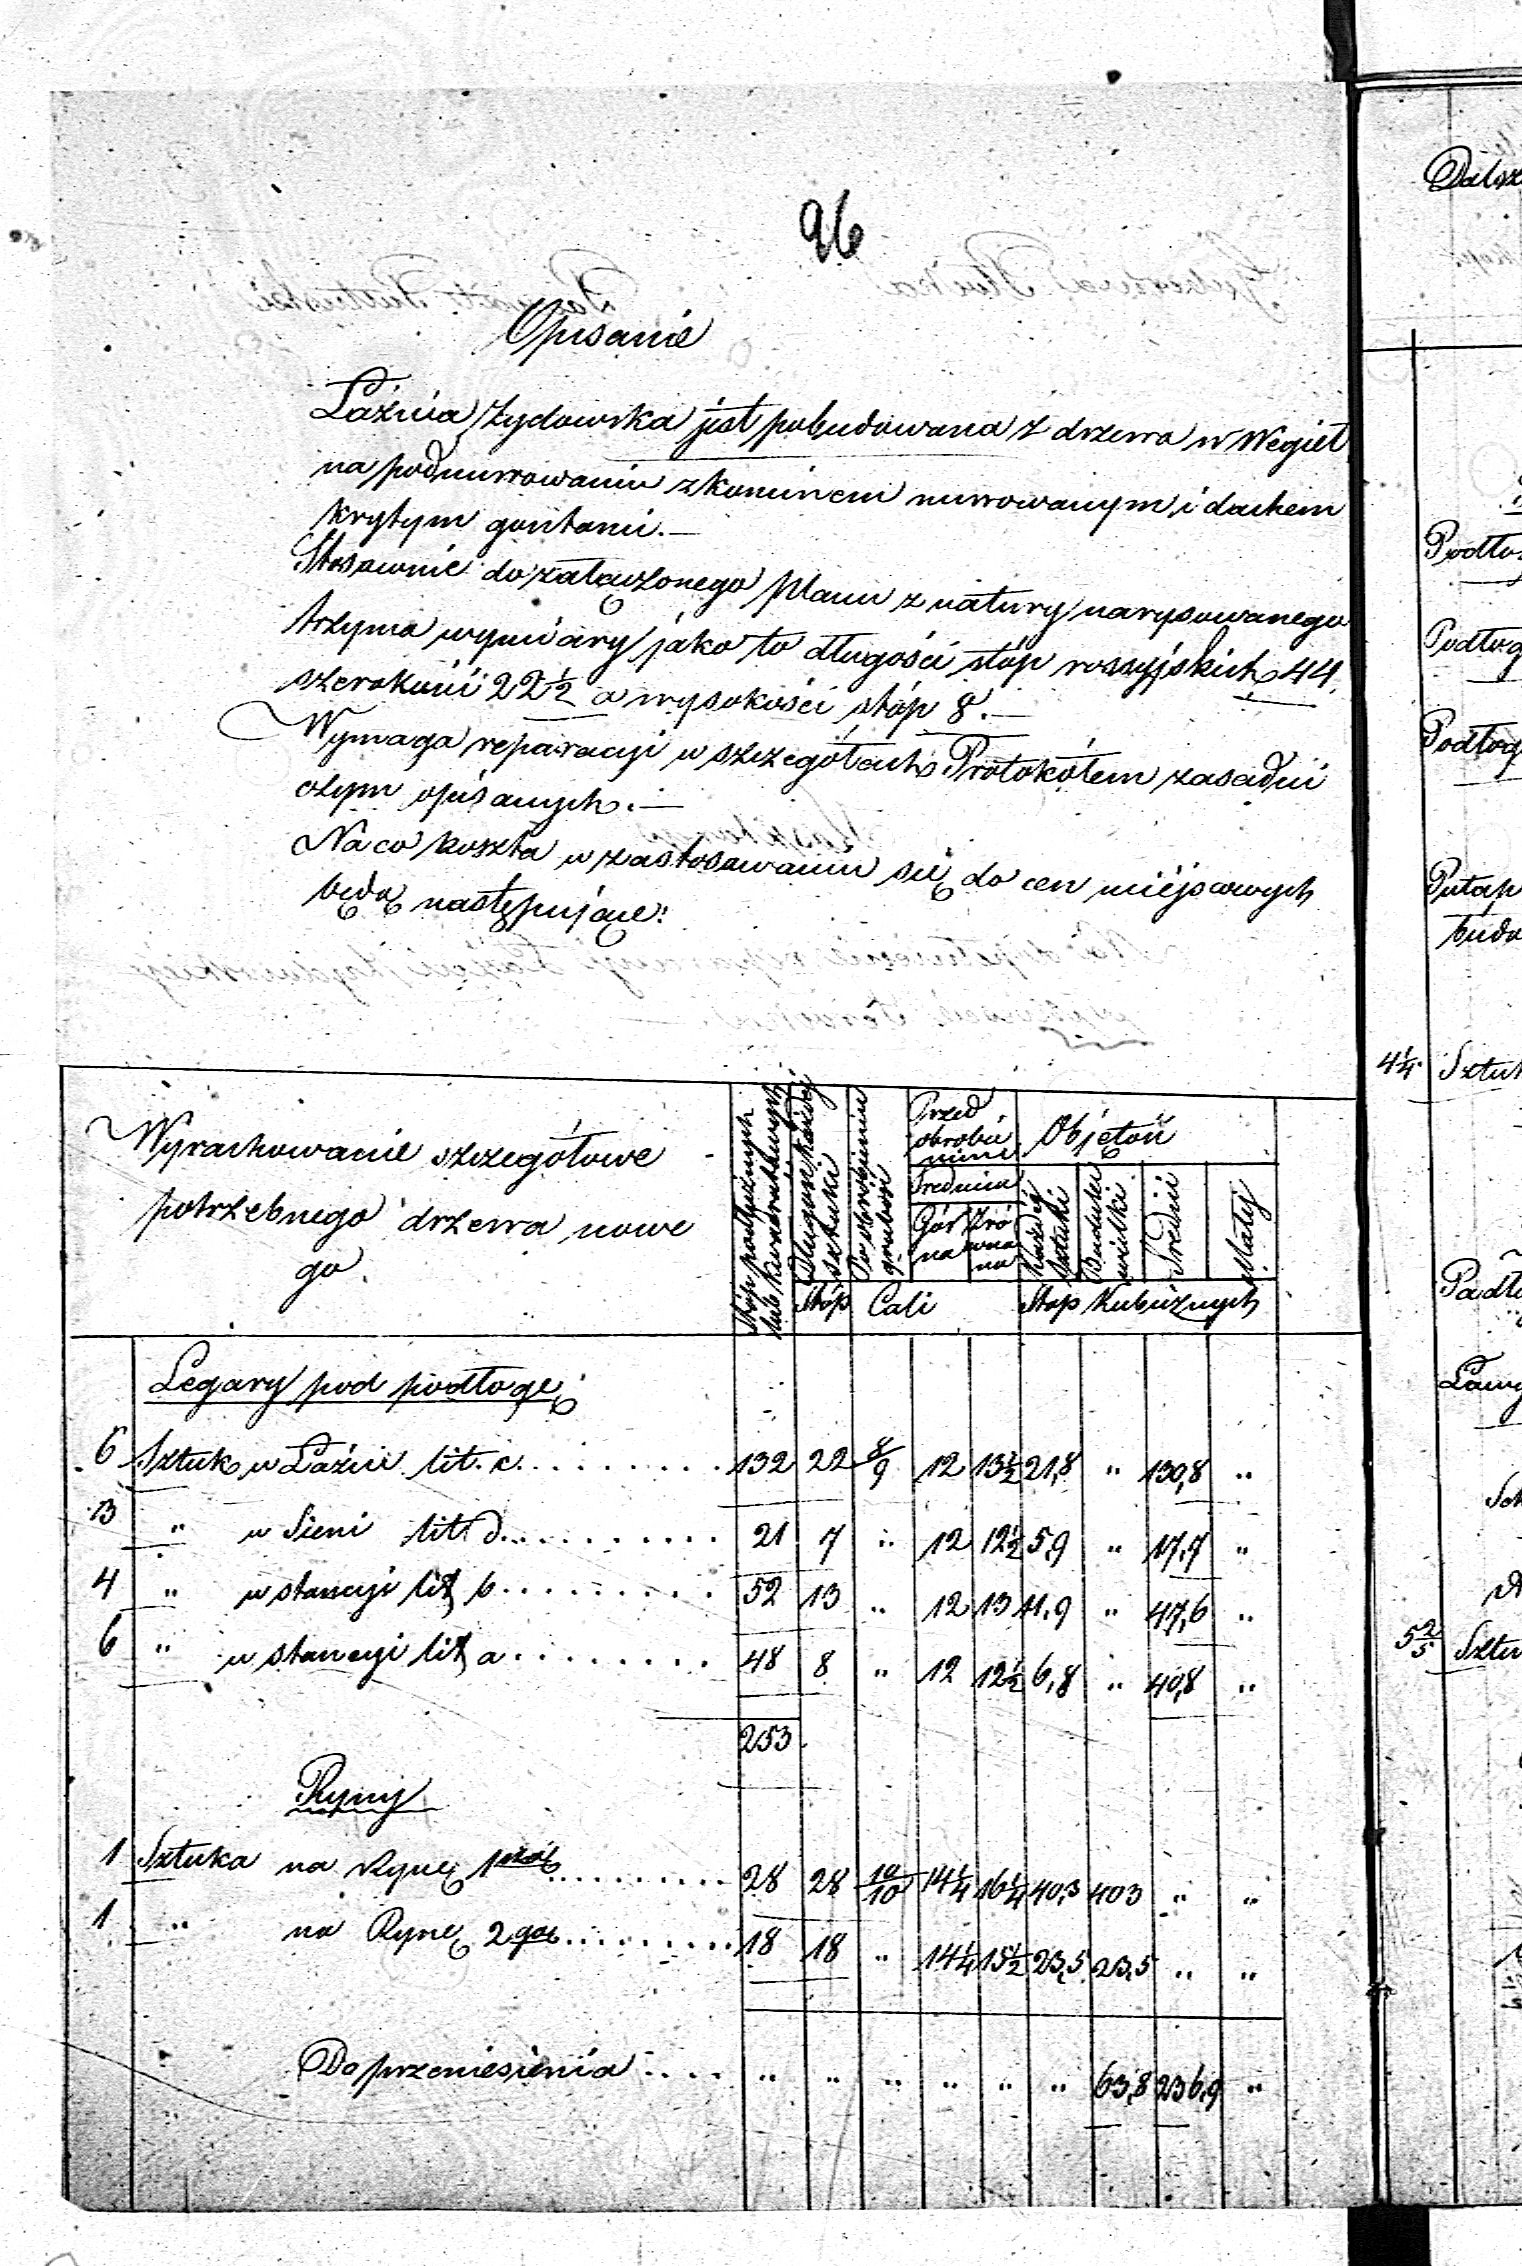 96
Opisanie
Łaźnia Żydowska jest pobudowana z drzewa w Węgieł
na podmurowaniu z kominem murowanym i dachem
krytym gontami.—
Stosownie do załączonego planu z natury narysowanego
trzyma wymiary jako to długości stóp rossyjskich 44,
szerokości 22½ a wysokości stóp 8.—
Wymaga reparacyi w szczegółach Protokółem zasadni
czym opisanych.—
Na co koszta w zastosowaniu się do cen miejscowych
będą następujące:
Wyrachowanie szczegółowe
potrzebnego drzewa nowe
go
Stóp podłużnych lub kwadratowych
Długość każdej sztuki
Po obrobieniu grubość
Przed obrobie niem
Średnica
Gór na
Zró wna na
Objętość
Każdej sztuki
Budulec wielki
Średni
Mały
Stóp Cali Stóp Kubicznych
Legary pod podłogę
6 Sztuk w Łaźni lit. c. 132 22 8/9 12 13½ 21,8 " 130,8 "
3 " w Sieni lit. d. 21 7 " 12 12½ 5,9 " 17,7 "
4 " w stancyi lit b 52 13 " 12 13 11,9 " 47,6 "
6 " w stancyi lit a 48 8 " 12 12½ 6,8 " 40,8 "
253
Rynny
1 Sztuka na Rynę 1szą 28 28 10/10 14¼ 16¼ 40,3 403 " "
1 " na Rynę 2gą 18 18 " 14¼ 15½ 23,5 23,5 " "
Do przeniesienia " " " " " " 63,8 236,9 "
Podło
Podłog
Podłog
Pułap
budo
4¼ Sztuk
Podło
Ławy
5⅖ Sztu